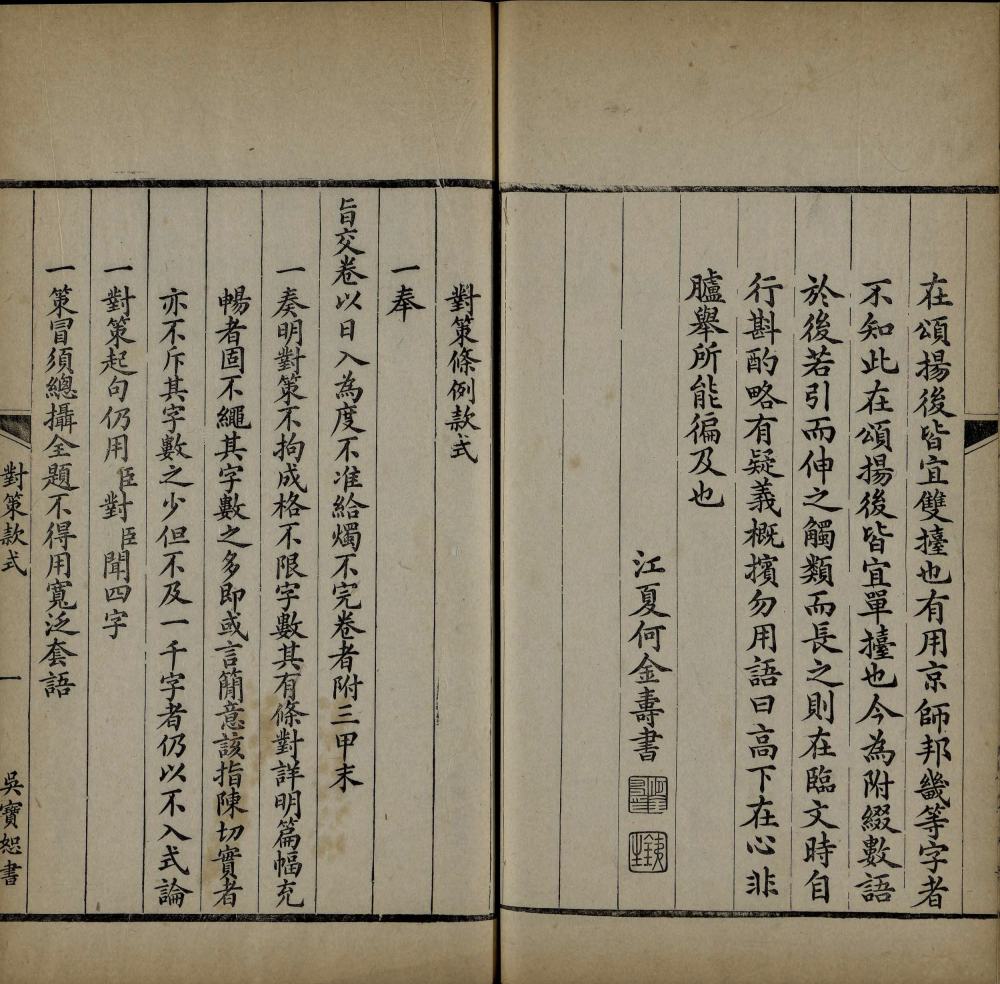 在頌揚後皆宜雙擡也有用京師邦畿等字者
不知此在頌揚後皆宜單擡也今為附綴數語
於後若引而伸之觸類而長之則在臨文時自
行斟酌略有疑義概擯勿用語曰高下在心非
臚舉所能徧及也
江夏何金壽書
對策條例款式
一奉
旨交卷以日入為度不准給燭不完卷者附三甲末
一奏明對策不拘成格不限字數其有條對詳明篇幅充
暢者固不繩其字數之多即或言簡意該指陳切實者
亦不斥其字數之少但不及一千字者仍以不入式論
一對策起句仍用臣對臣聞四字
一策冒須總攝全題不得用寬泛套語
對策款式
一
吳寶恕書